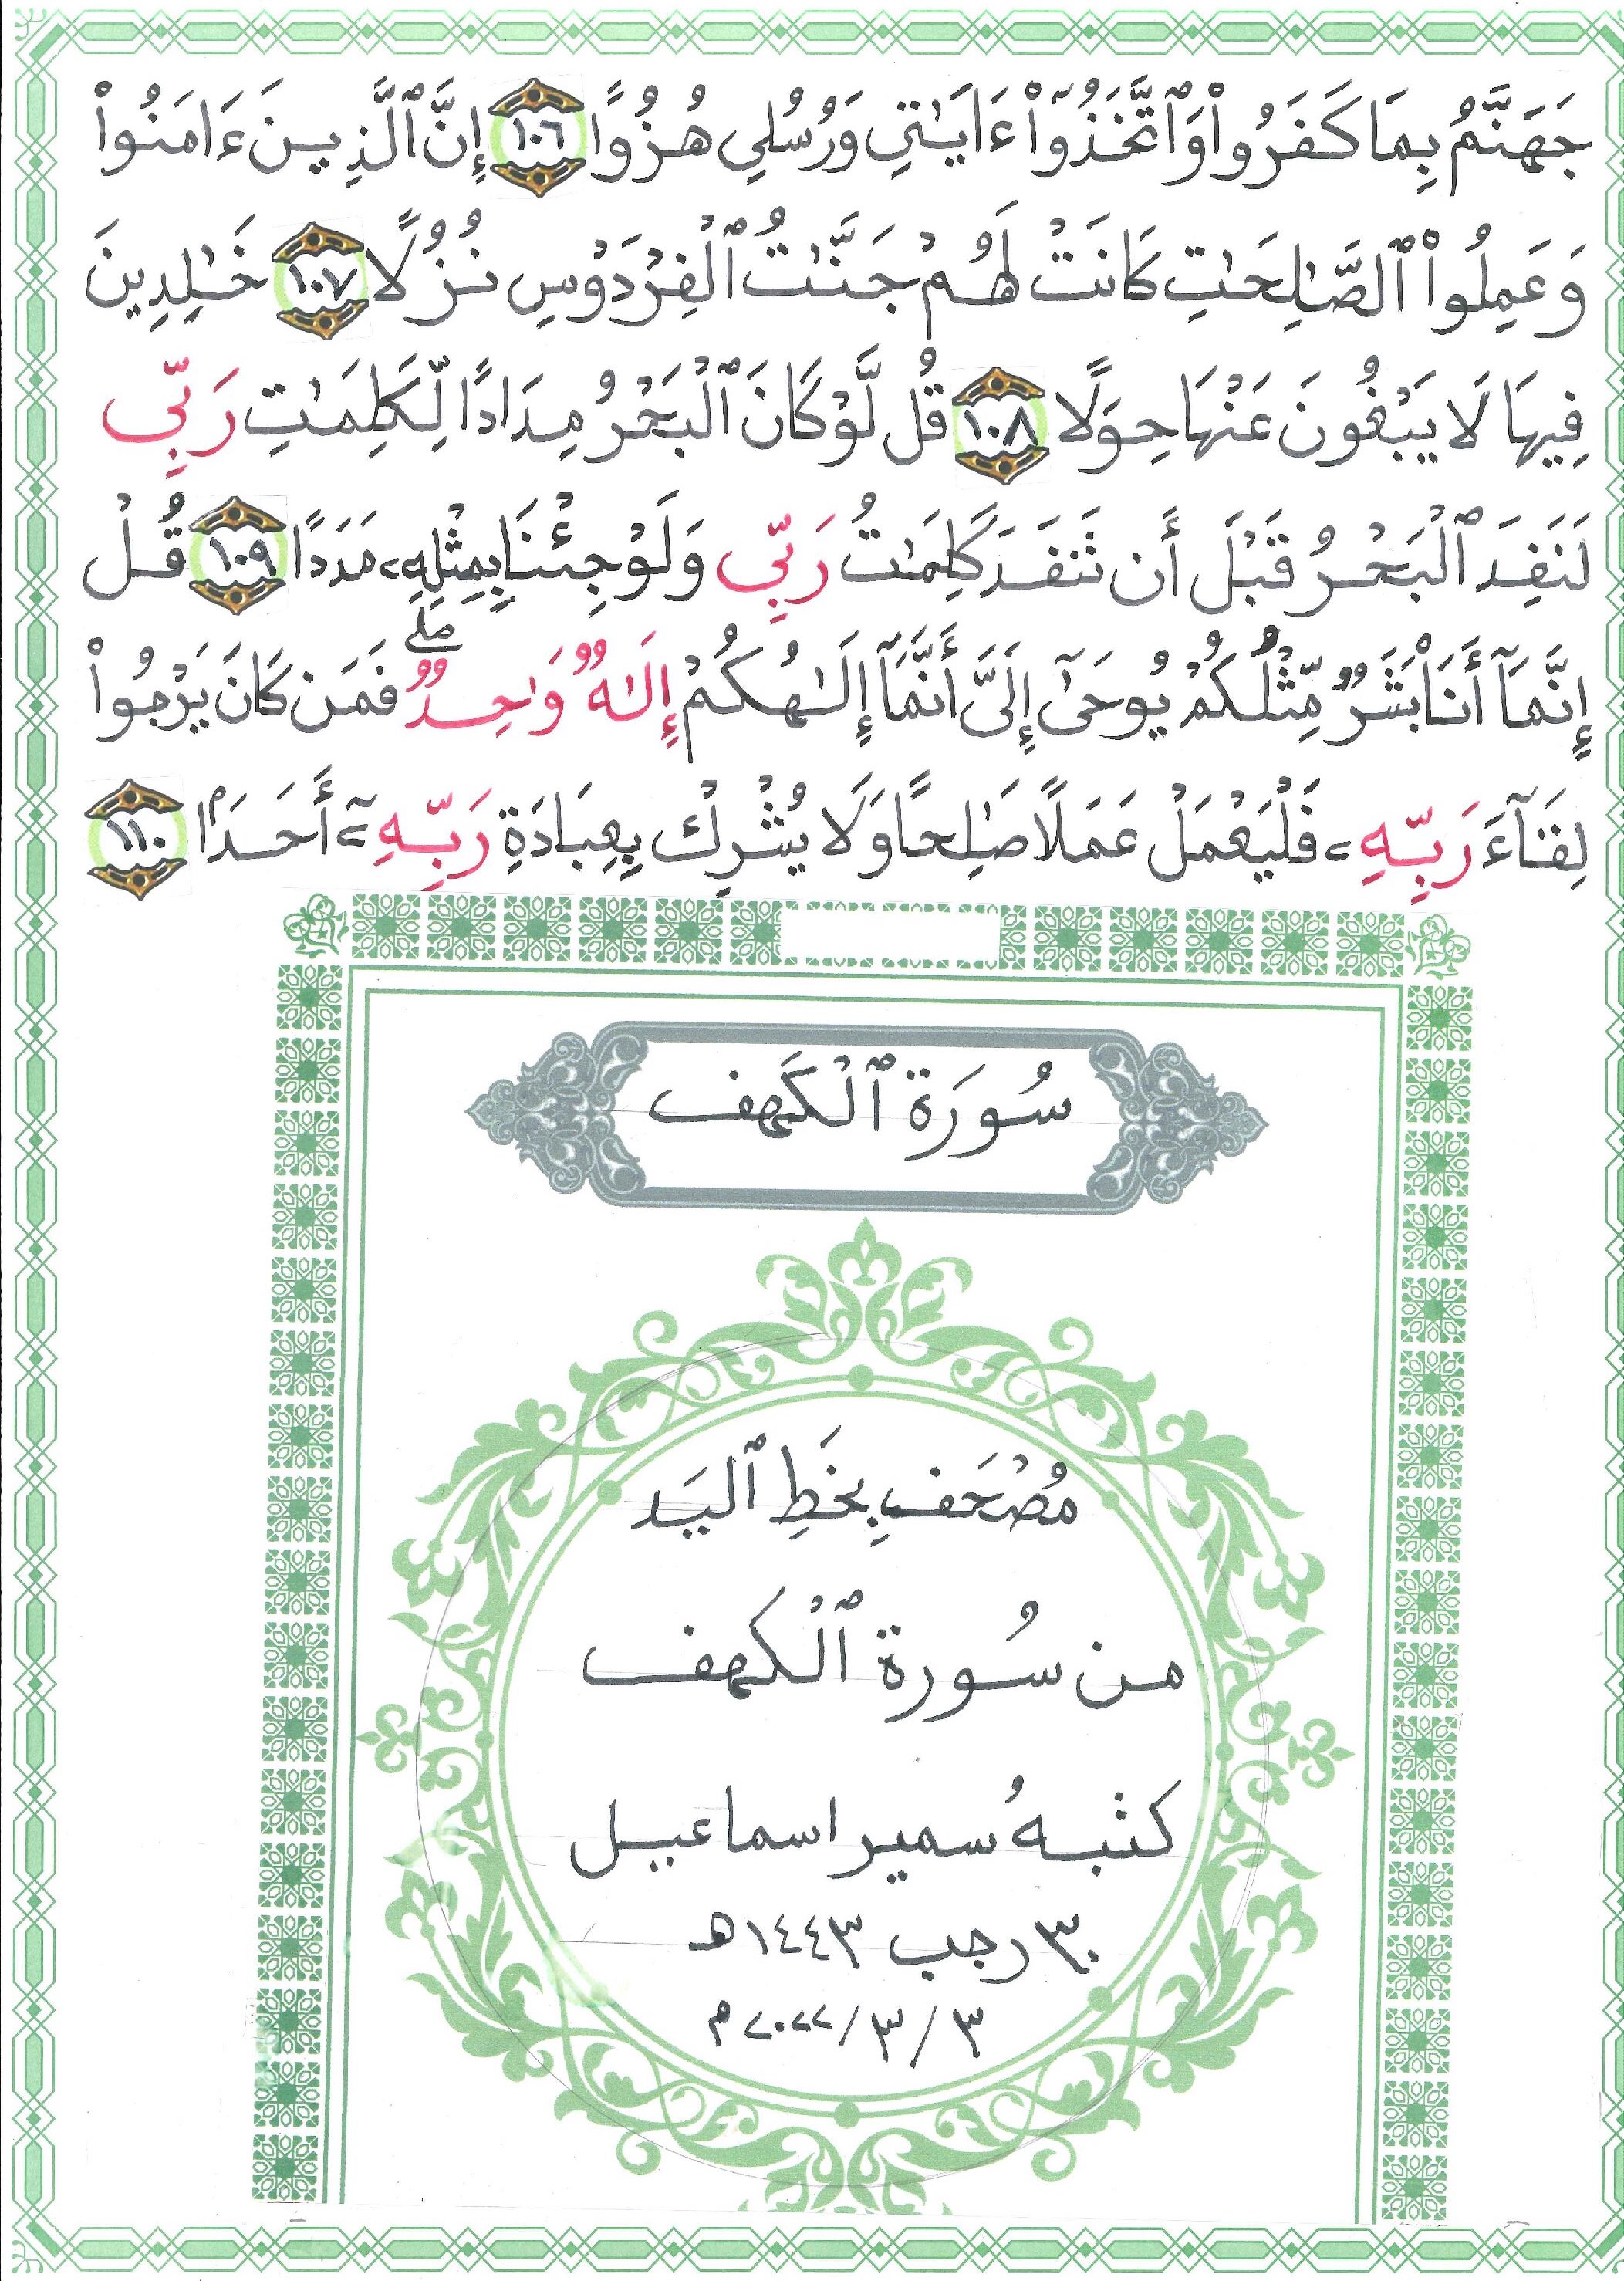 جَهَنَّمُ بِمَا كَفَرُوا۟ وَٱتَّخَذُوٓا۟ ءَايَٰتِى وَرُسُلِى هُزُوًا ١٠٦ إِنَّ ٱلَّذِينَ ءَامَنُوا۟
وَعَمِلُوا۟ ٱلصَّٰلِحَٰتِ كَانَتْ لَهُمْ جَنَّٰتُ ٱلْفِرْدَوْسِ نُزُلًا ١٠٧ خَٰلِدِينَ
فِيهَا لَا يَبْغُونَ عَنْهَا حِوَلًا ١٠٨ قُل لَّوْ كَانَ ٱلْبَحْرُ مِدَادًا لِّكَلِمَٰتِ رَبِّى
لَنَفِدَ ٱلْبَحْرُ قَبْلَ أَن تَنفَدَ كَلِمَٰتُ رَبِّى وَلَوْ جِئْنَا بِمِثْلِهِۦ مَدَدًا ١٠٩ قُلْ
إِنَّمَآ أَنَا۠ بَشَرٌ مِّثْلُكُمْ يُوحَىٰٓ إِلَىَّ أَنَّمَآ إِلَٰهُكُمْ إِلَٰهٌ وَٰحِدٌ ۖ فَمَن كَانَ يَرْجُوا۟
لِقَآءَ رَبِّهِۦ فَلْيَعْمَلْ عَمَلًا صَٰلِحًا وَلَا يُشْرِكْ بِعِبَادَةِ رَبِّهِۦٓ أَحَدًۢا ١١٠
سُورَة ٱلْكَهف
مُصْحَف بِخَطِ ٱليَد
من سُورة ٱلْكهف
كتبهُ سمير اسماعيل
٣٠ رجب ١٤٤٣هـ
٣ / ٣ / ٢٠٢٢ م